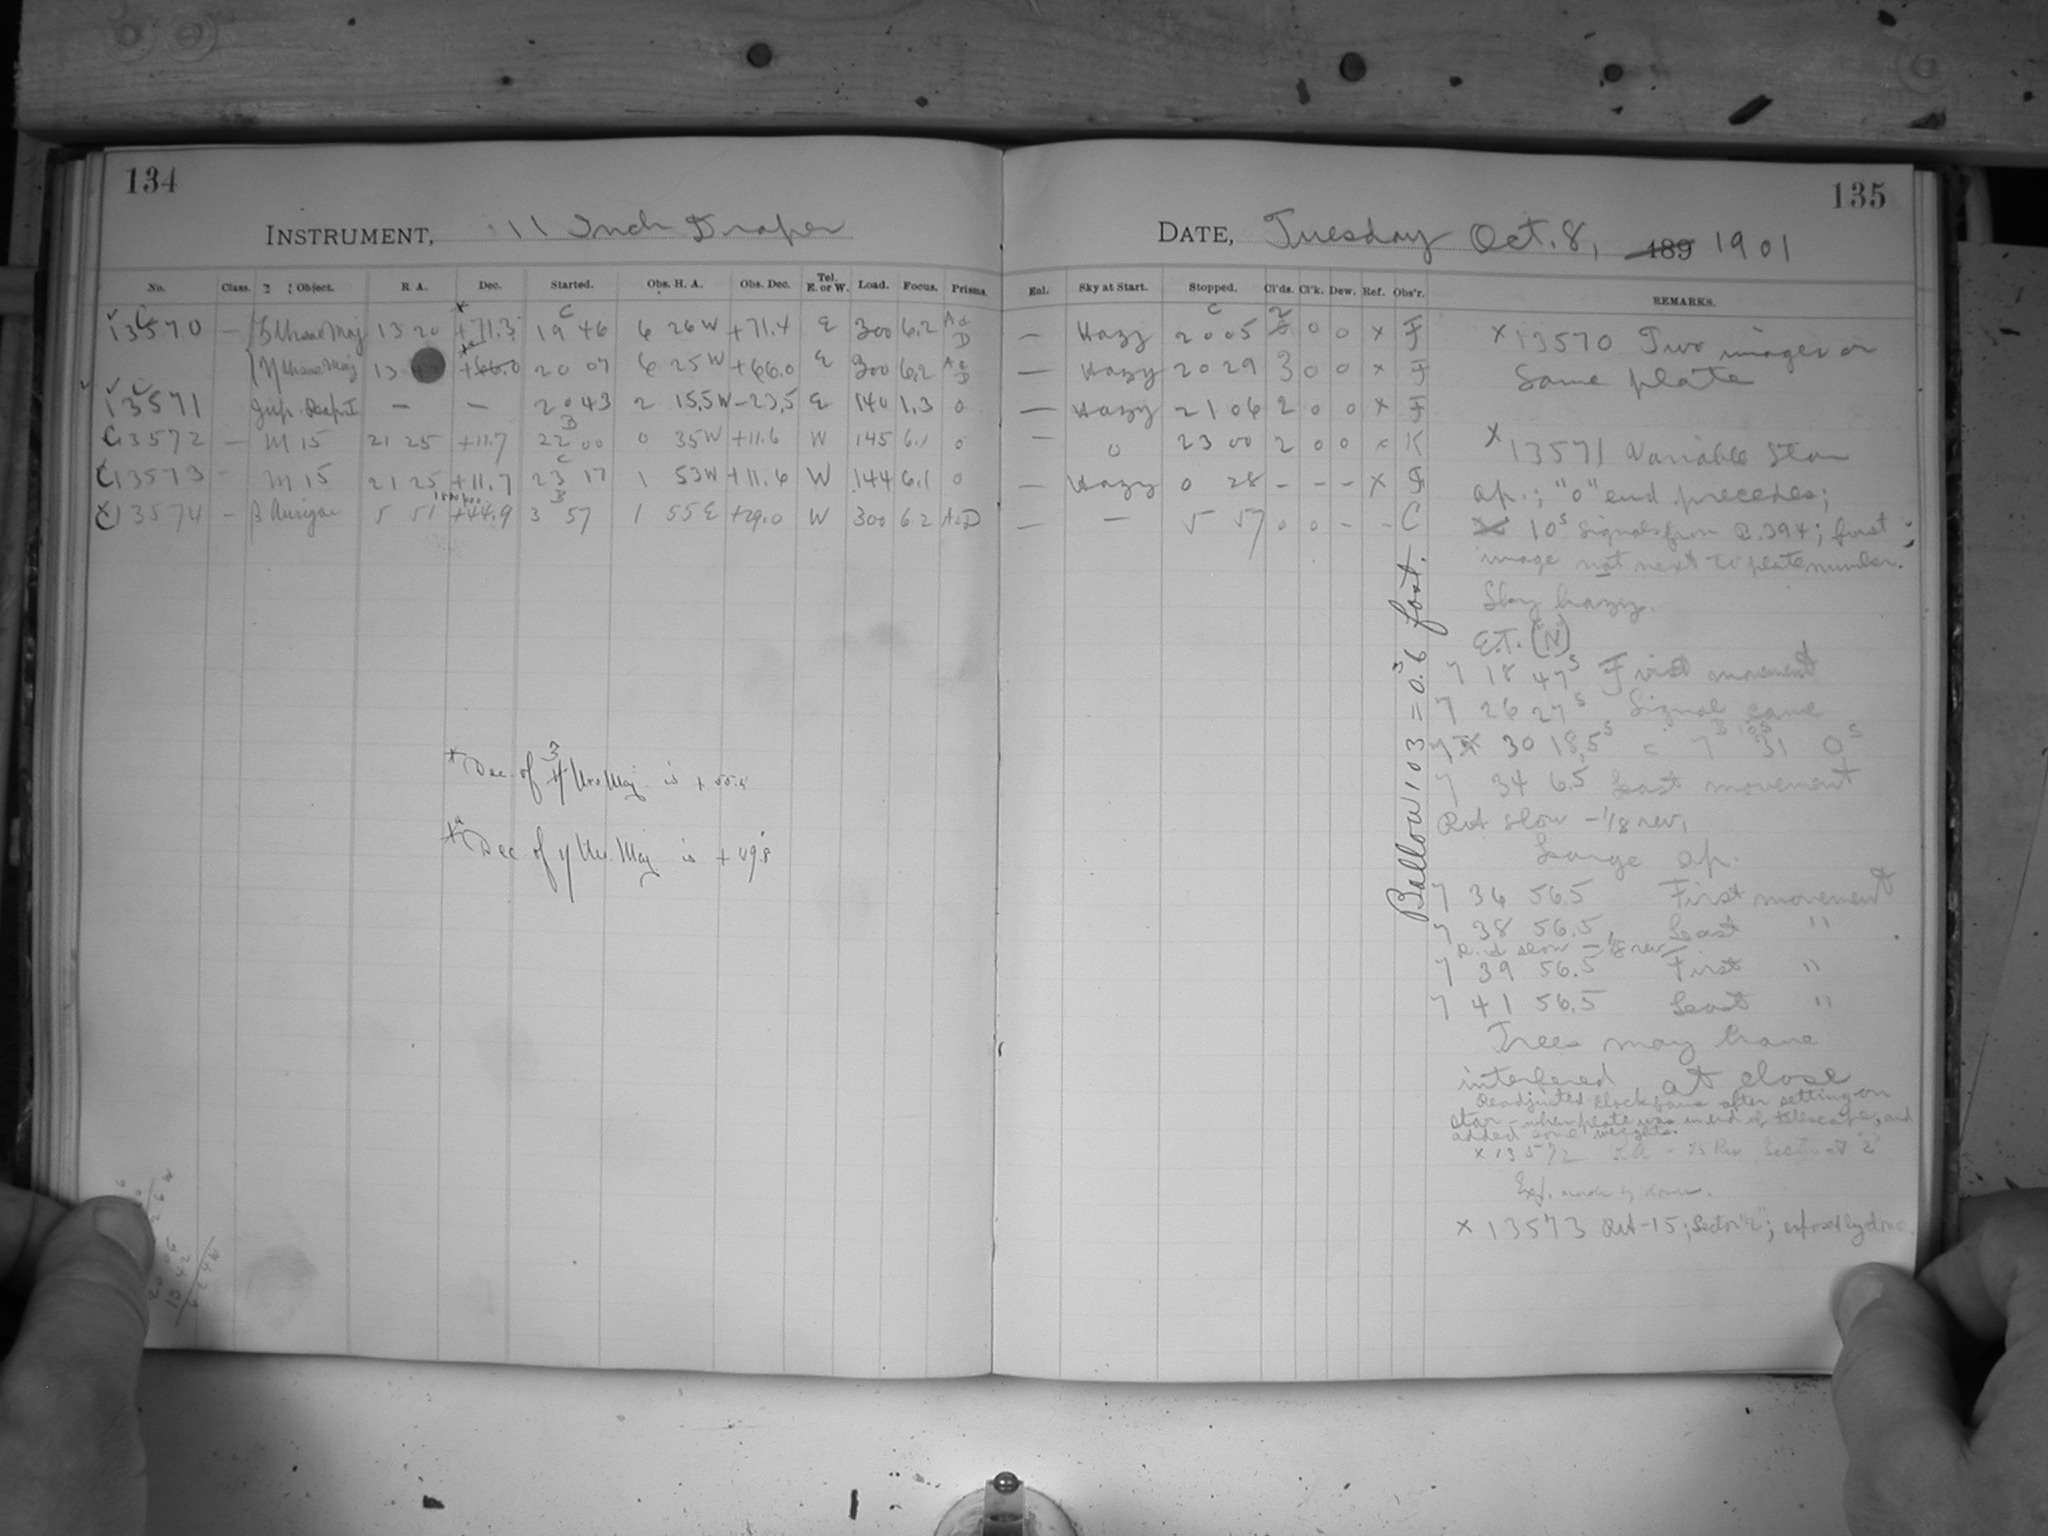 134
INSTRUMENT, 11 Inch Draper
No. Class. Object. R. A. Dec. Started. Obs. H. A. Obs. Dec. Tel. E. or W. Load. Focus. Prisms.
13570 — ζ Ursae Maj 13 20 +71.3 19 46 6 26 W +71.4 E 300 6.2 A & D
η Ursae Maj 13 +66.0 20 07 6 25 W +66.0 E 300 6.2 A & D
13571 — — 20 43 2 15.5 W -23.5 E 140 1.3 0
13572 — M 15 21 25 +11.7 22 00 0 35 W +11.6 W 145 6.1 0
13573 - M 15 21 25 +11.7 23 17 1 53 W +11.6 W 144 6.1 0
13574 - β Aurigae 5 51 +44.9 3 57 1 55 E +29.0 W 300 6.2 A & D
*Dec. of ζ Urs. Maj. is + 55.5
*a Dec. of η Urs. Maj is + 49.8
135
DATE, Tuesday Oct. 8, 189 1901
Enl. Sky at Start. Stopped. Cl'ds. Cl'k. Dew. Ref. Obs'r. REMARKS.
— Hazy 20 05 2 0 0 x F
— Hazy 20 29 3 0 0 x F
— Hazy 21 06 2 0 0 x F
— 0 23 00 2 0 0 x K
— Hazy 0 28 - - - x F
— — 5 57 0 0 - - C
Ballow 103 = 0.6 fast.
x 13570 Two images on
same plate
x 13571 Variable Star
ap.; "0" end precedes;
10s signals from B. 394; first
image not next to plate number.
Sky hazy.
E.T. (N)
7 18 47s First movement
7 26 27s Signal came
7 30 18.5s = 7 31 0s
7 34 6.5 Last movement
R.A. slow -1/8 rev.
Large ap.
7 36 56.5 First movement
7 38 56.5 Last "
R.A. slow -1/8 rev.
7 39 56.5 First "
7 41 56.5 Last "
Trees may have
interfered at close
Readjusted clock after setting on
star - when plate was in end of telescope, and
added some weights.
x 13572 R.A. - 15 Rev Sector "2"
Exp. made by dome.
x 13573 RA -15; Sector "2"; exposed by dome.
20 05
13 42